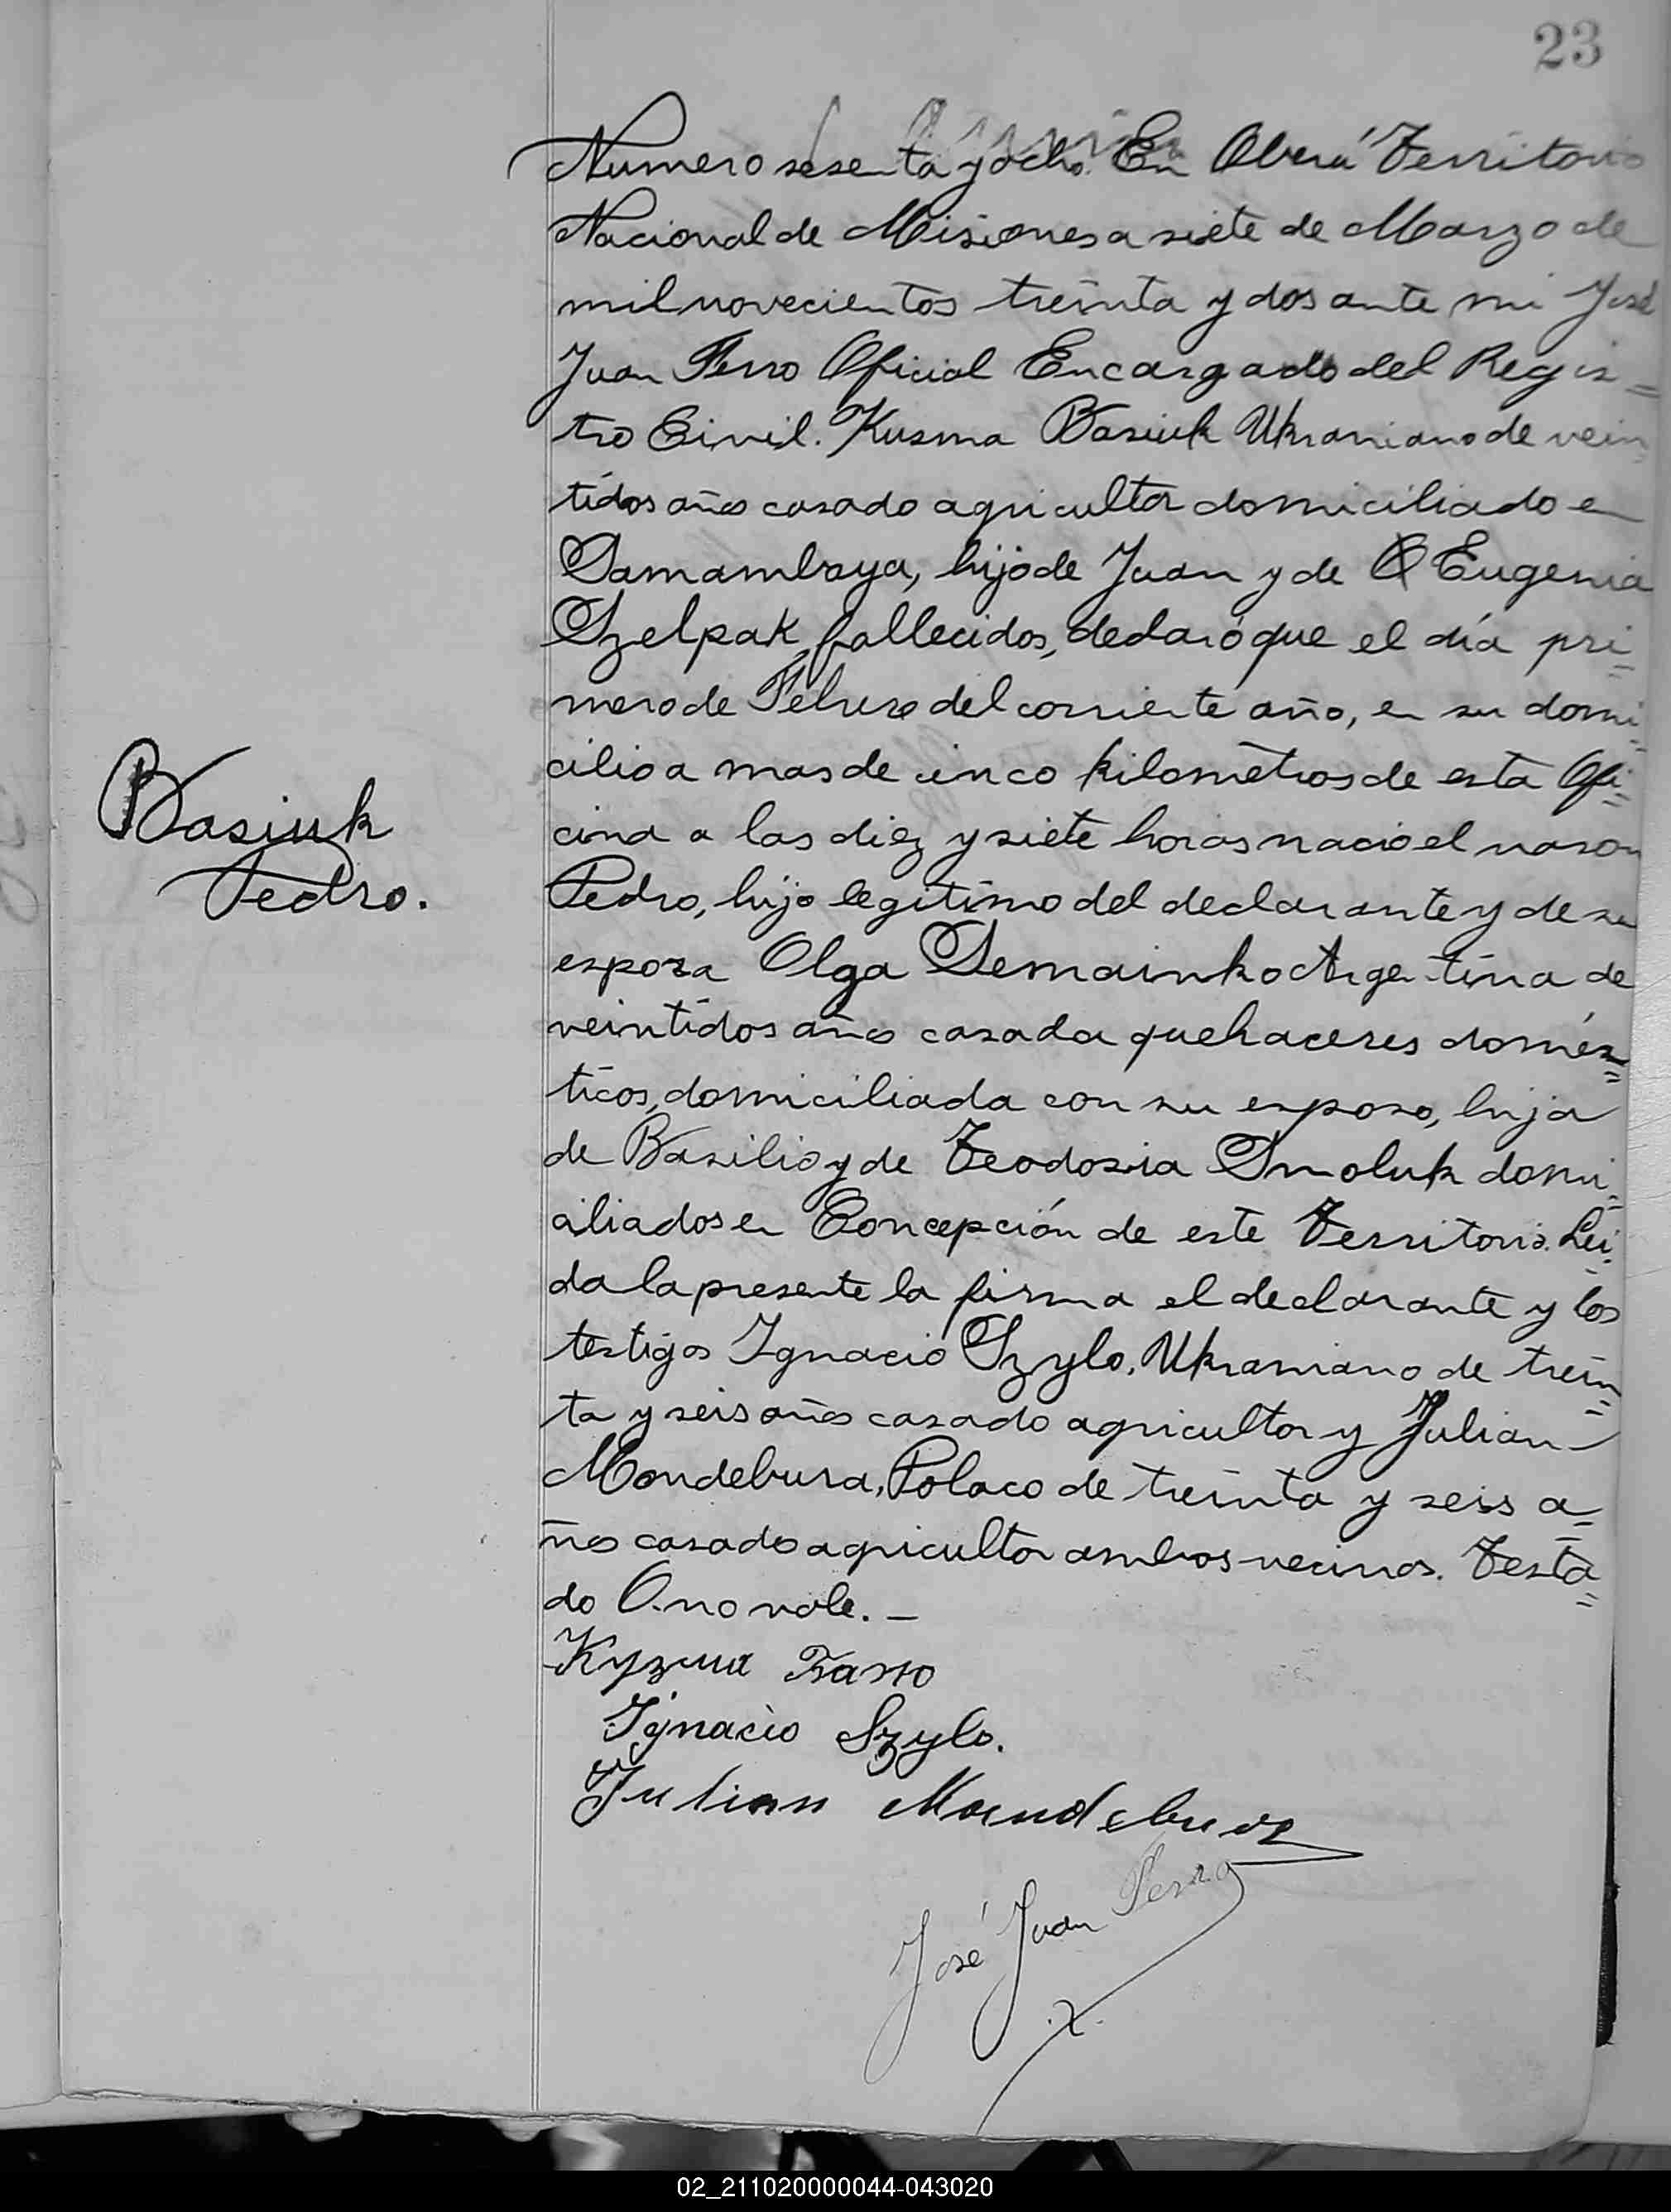 23
Numero sesenta y ocho. En Oberá Territorio
Nacional de Misiones a siete de Marzo de
mil novecientos treinta y dos ante mi José
Juan Ferro Oficial Encargado del Regis=
tro Civil. Kusma Basiuk Ukraniano de vein
tidos años casado agricultor domiciliado en
Samambaya, hijo de Juan y de O Eugenia
Szelpak, fallecidos, declaró que el día pri=
mero de Febrero del corriente año, en su domi=
cilio a mas de cinco kilometros de esta Ofi=
cina a las diez y siete horas nació el varon
Basiuk
Pedro.
Pedro, hijo legitimo del declarante y de su
esposa Olga Semainko Argentina de
veintidos años casada quehaceres domés=
ticos, domiciliada con su esposo, hija
de Basilio y de Teodosia Smoluk domi=
ciliados en Concepción de este Territorio. Lei=
da la presente la firma el declarante y los
testigos Ignacio Szylo, Ukraniano de trein=
ta y seis años casado agricultor y Julian
Mondebura, Polaco de treinta y seis a=
ños casado agricultor ambos vecinos. Testa=
do O. no vale. —
Ignacio Szylo.
Julian
José Juan Ferro
02_211020000044-043020